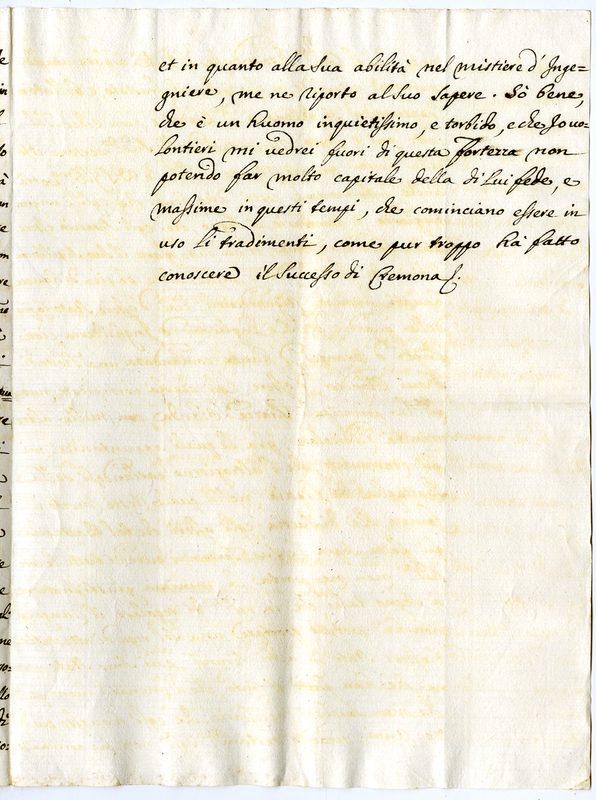 et in quanto alla sua abilità nel mistiere d'Inge=
gniere, me ne riporto al suo sapere. Sò bene,
che è un huomo inquietissimo, e torbido, e che Jo uo=
lontieri mi vedrei fuori di questa fortezza non
potendo far molto capitale della di lui fede, e
massime in questi tempi, che cominciano essere in
uso li tradimenti, come pur troppo hà fatto
conoscere il successo di Cremona